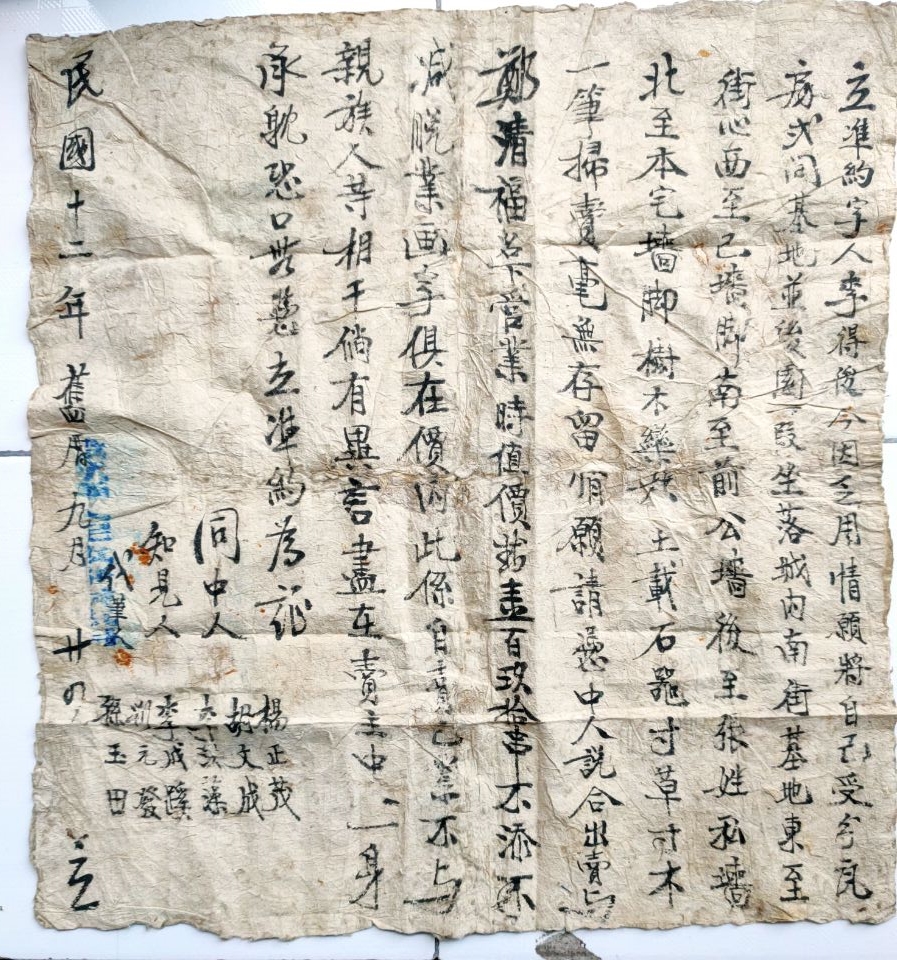 立准約字人李得俊今因乏用情願將自己受分瓦
房弍间基地並後園一段坐落城内南街基地東至
街心西至己墻脚南至前公墻後至張姓私墻
北至本宅墻脚樹木 土載石器寸草寸木
一筆掃賣毫無存留情願請憑中人説合出賣与
鄭清福名下管業時值價 壹百玖拾串不添不
减脱業画字俱在價内此係自賣己業不与
親族人等相干倘有異言盡在賣主中一身
承躭恐口无憑立准約為証
同中人
楊正茂
胡文成
知見人
李成蹊
元發
代筆人
孫玉田
民國十二年舊曆九月廿四 立